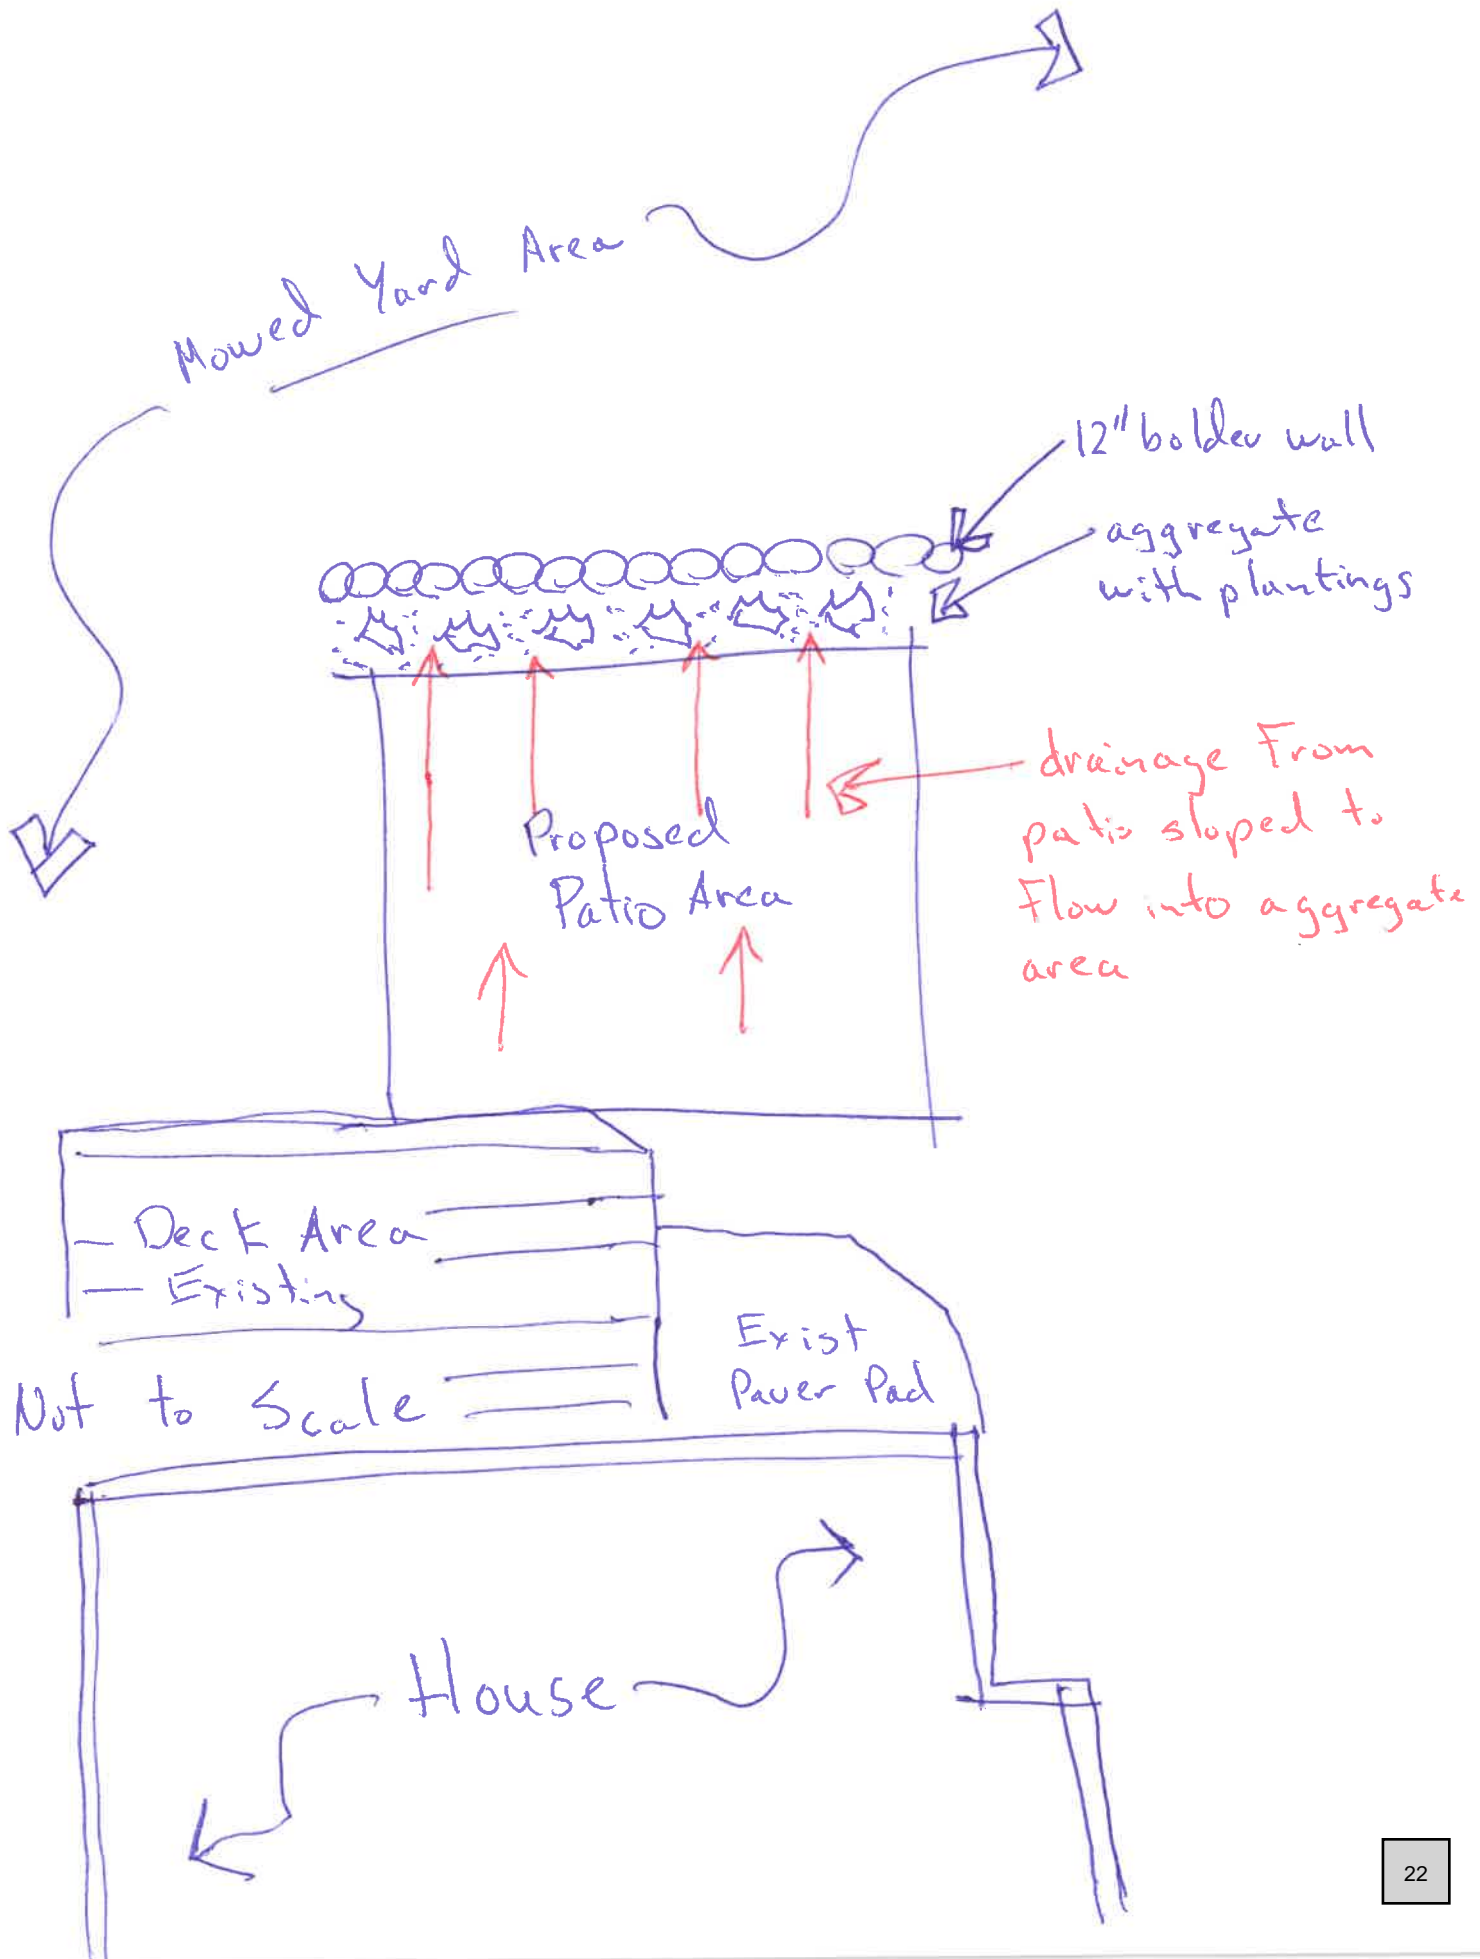 Mowed Yard Area
12" bolder wall
aggregate
with plantings
drainage From
patio sloped to
Flow into aggregate
area
Proposed
Patio Area
Deck Area
Existing
Exist
Paver Pad
Not to Scale
House
22